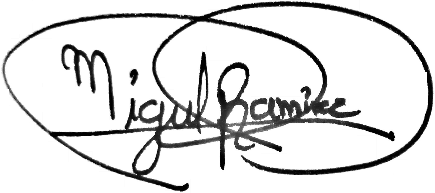 Miguel Ramirez